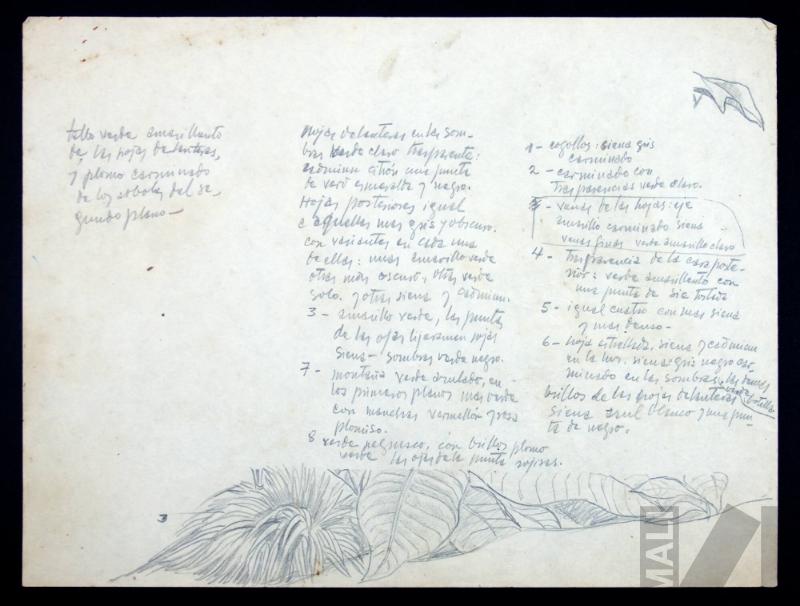 tallo verde amarillento
de las hojas delanteras,
y plomo carminado
de los árboles del se-
gundo plano—
Hojas delanteras en las som-
bras verde claro trasparente:
cadmiun citrón una punta
de verd esmeralda y negro.
Hojas posteriores igual
a aquellas mas gris y obscuro.
con variantes en cada una
de ellas: unas amarillo verde
otras más oscuro, otras verde
solo. y otras siena y cadmiun.
3 — amarillo verde, las puntas
de las ojas lijeramen rojas
siena — sombras verde negro.
7 — montaña verde azulado, en
los primeros planos mas verde
con manchas vermellón y rosa
plomiso.
8 verde negrusco. con brillos plomo
verde las ojas de la punta rojisas.
1 — cogollos: siena gris
carminado
2 — carminado con
trasparencias verde claro.
3 — venas de las hojas: eje
amarillo carminado siena
venas finas verde amarillo claro
4 — trasparencia de la cara poste-
rior: verde amarillento con
una punta de sie tostada
5 — igual cuatro con mas siena
y mas denso—
6 — hoja siena y cadmiun
en la luz. siena gris negro car-
minado en las sombras, las
verde botella
brillos de las hojas delanteras
siena azul blanco y una pun-
ta de negro.
3
MALI